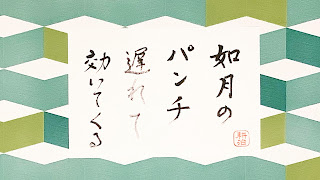 如月の
パンチ
遅れて
効いてくる